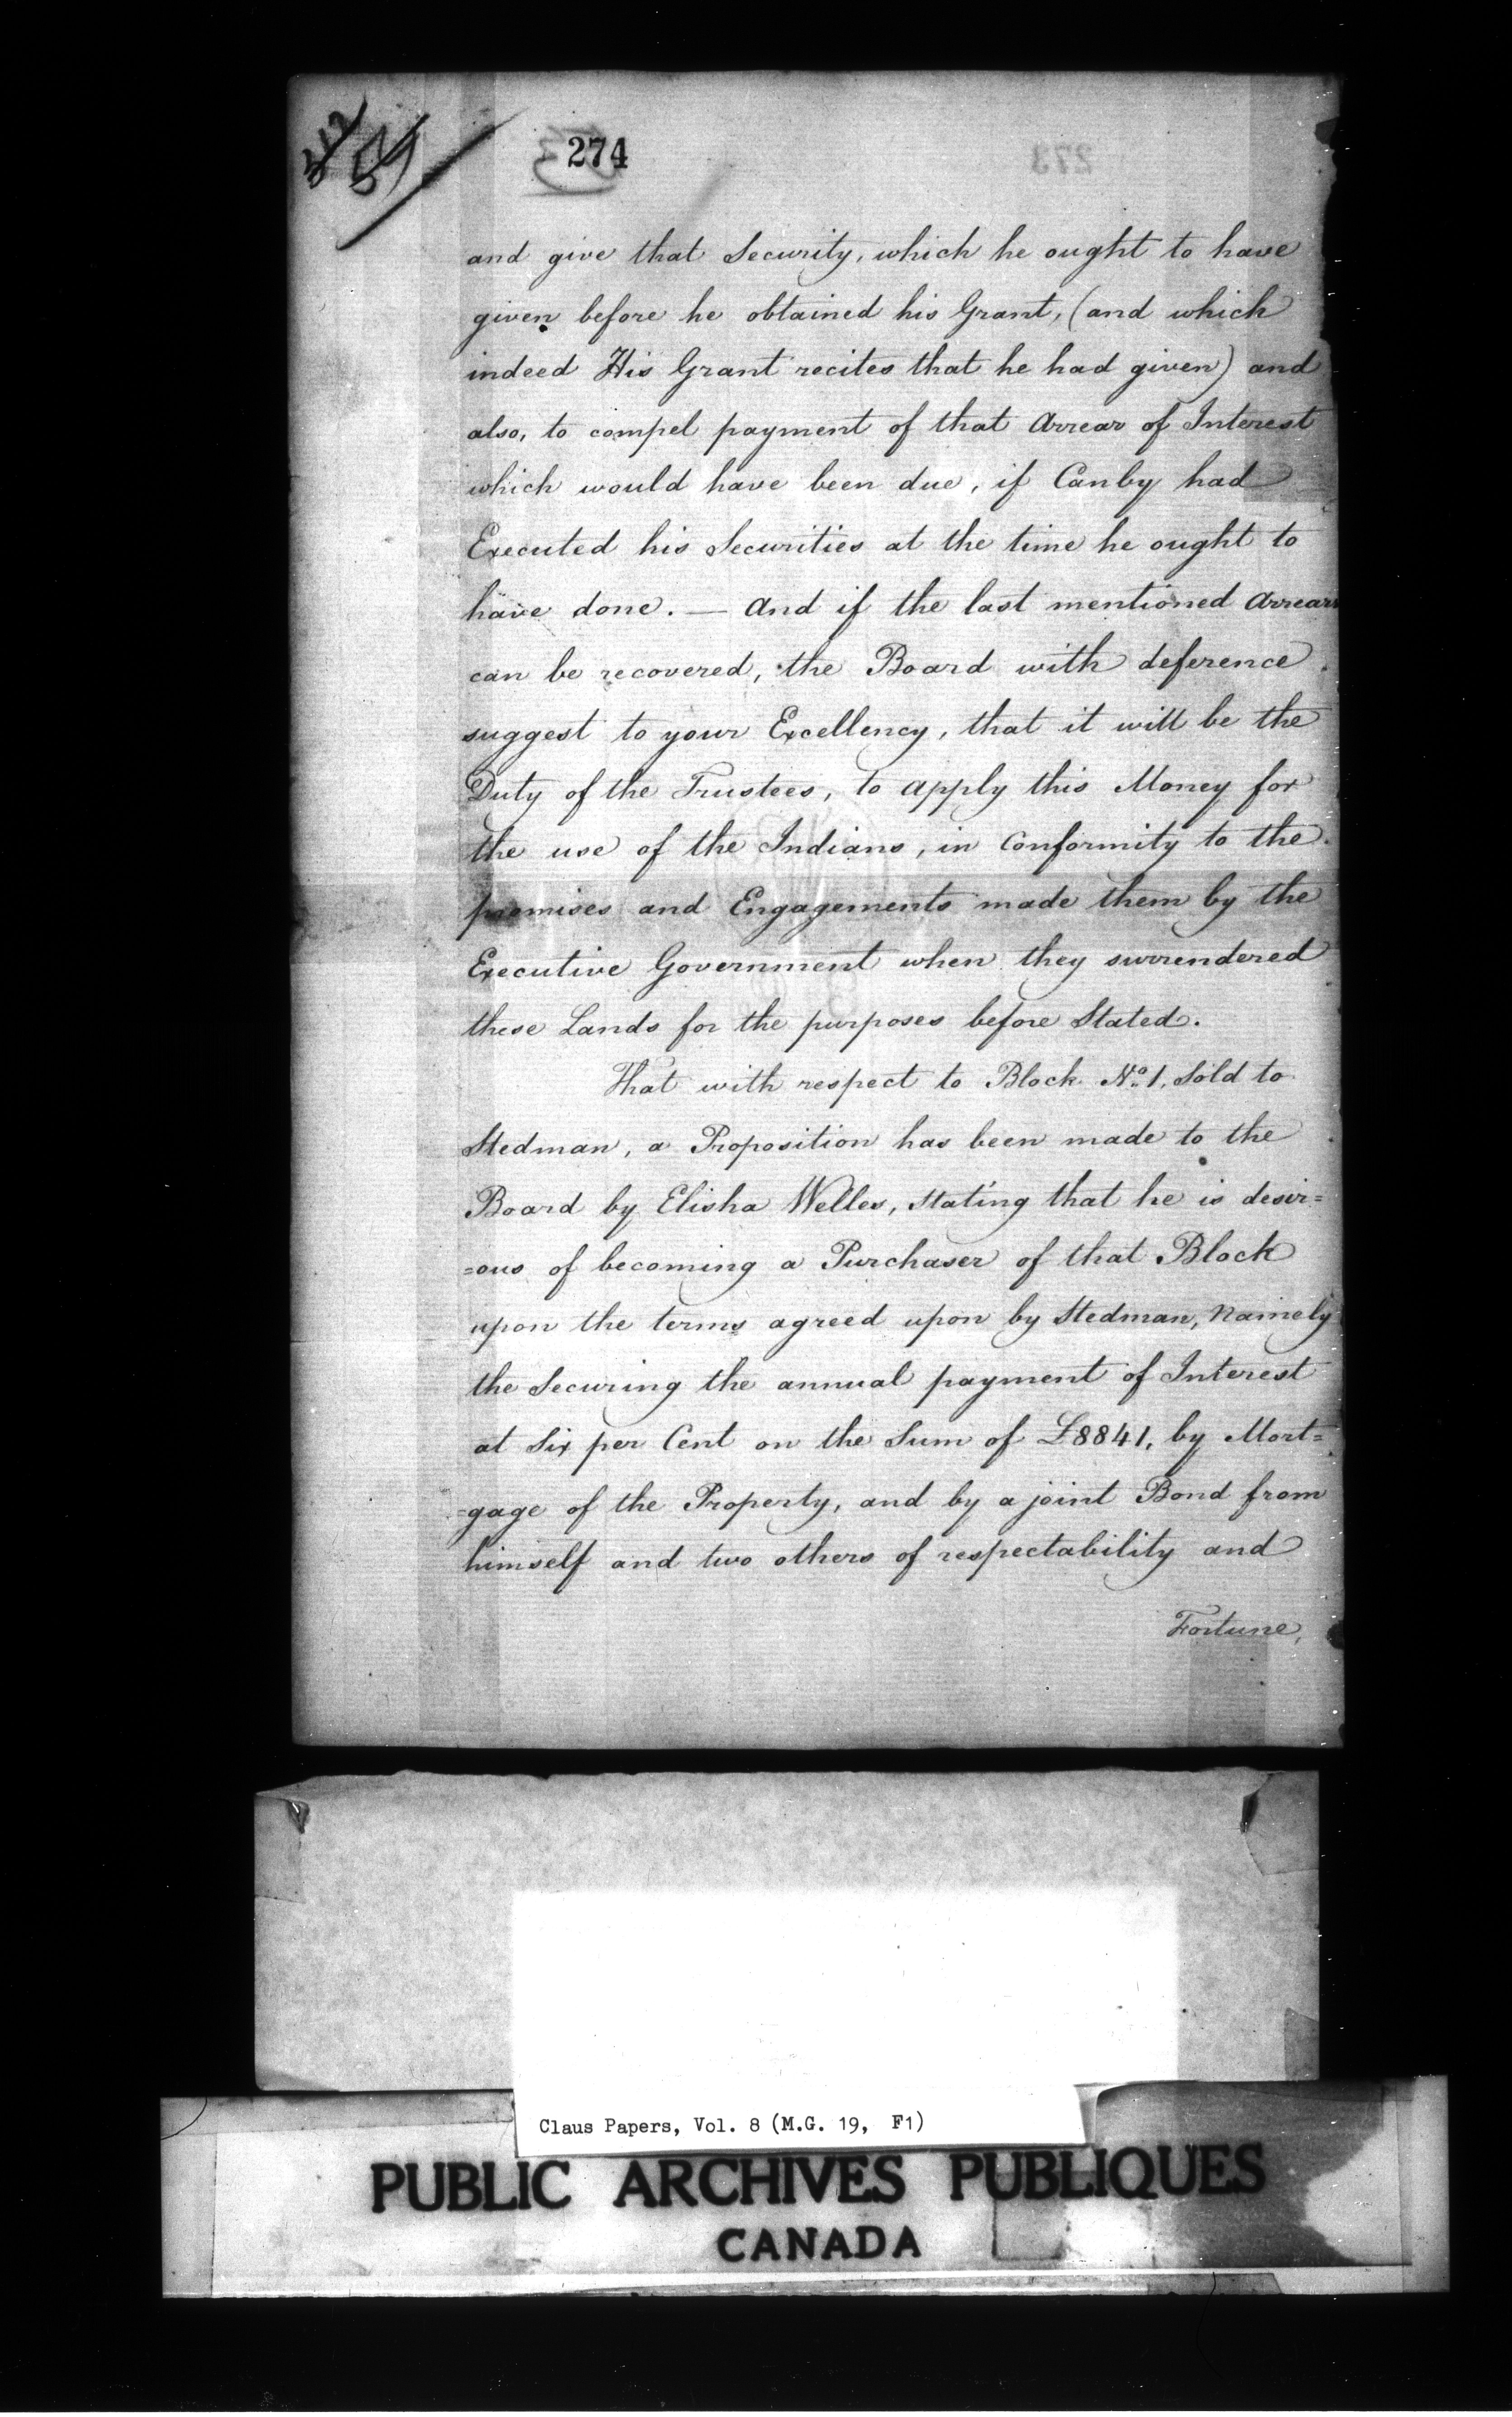 274
273
and give that Security, which he ought to have
given before he obtained his Grant, (and which
indeed His Grant recites that he had given) and
also, to compel payment of that Arrear of Interest
which would have been due, if Canby had
Executed his Securities at the time he ought to
have done. — And if the last mentioned Arrears
can be recovered, the Board with deference
suggest to your Excellency, that it will be the
Duty of the Trustees, to apply this Money for
the use of the Indians, in Conformity to the
promises and Engagements made them by the
Executive Government when they surrendered
these Lands for the purposes before Stated.
That with respect to Block No. 1, Sold to
Stedman, a Proposition has been made to the
Board by Elisha Welles, stating that he is desir=
=ous of becoming a Purchaser of that Block
upon the terms agreed upon by Stedman, Namely
the Securing the annual payment of Interest
at Six per Cent on the Sum of £8841, by Mort=
=gage of the Property, and by a joint Bond from
himself and two others of respectability and
Fortune,
Claus Papers, Vol. 8 (M.G. 19, F1)
PUBLIC ARCHIVES PUBLIQUES
CANADA